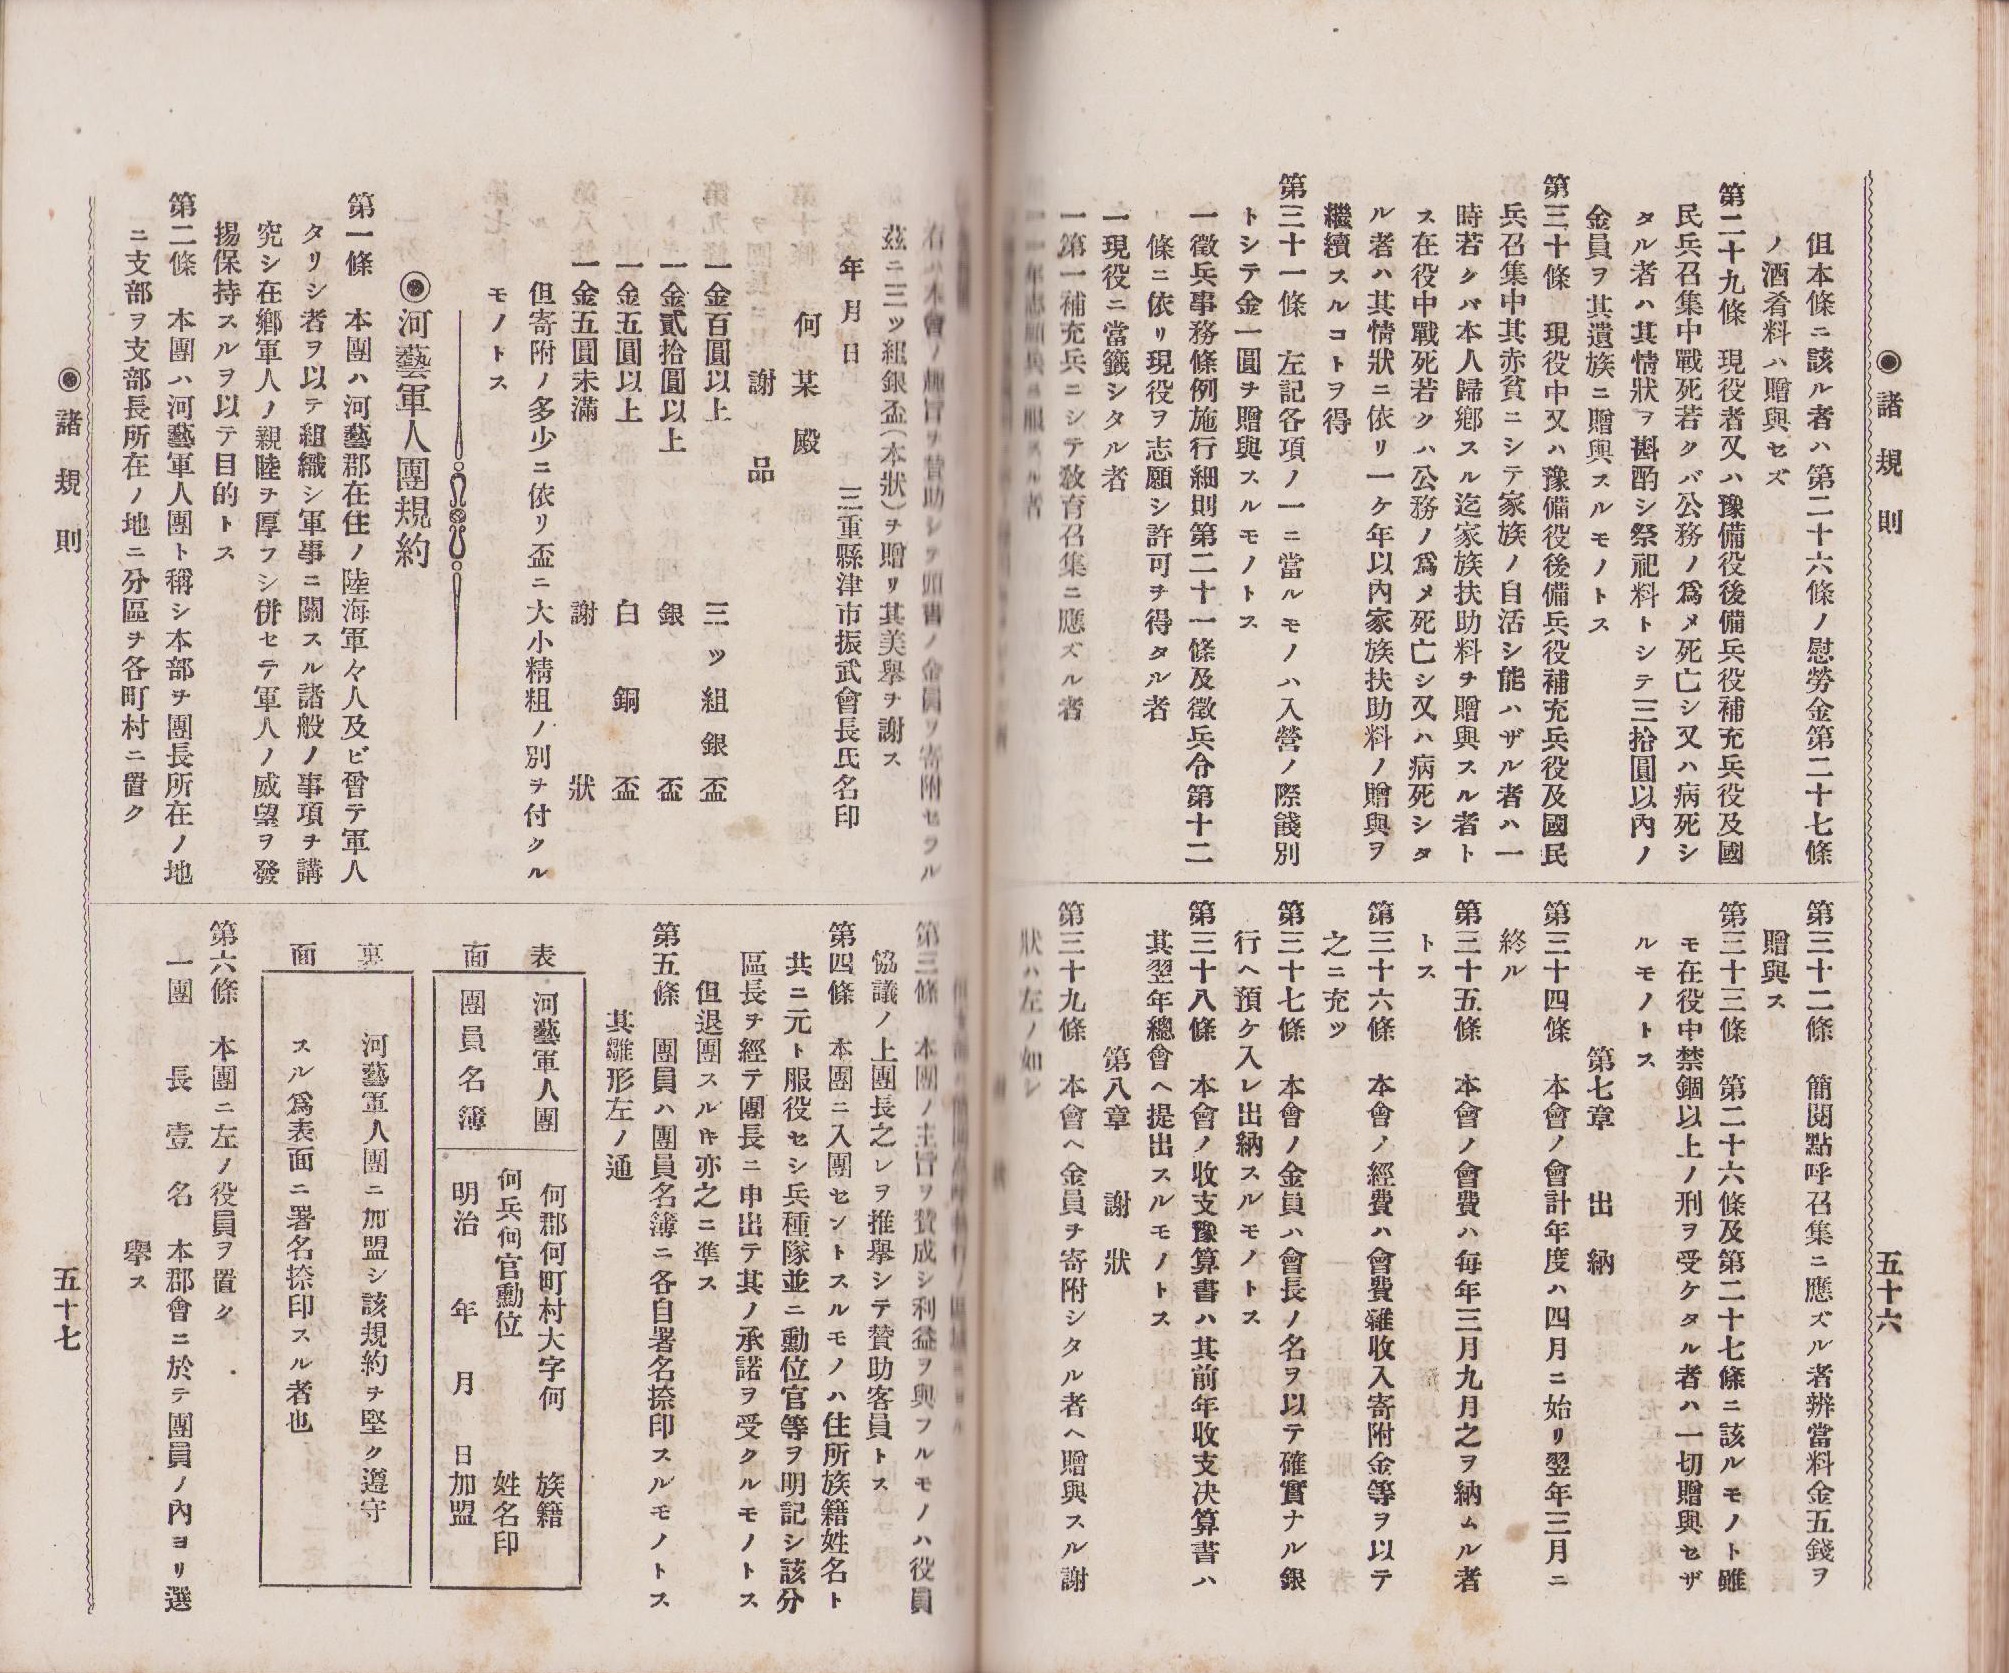 ◉諸規則
五十六
但本條ニ該ル者ハ第二十六條ノ慰勞金第二十七條
ノ酒肴料ハ贈與セズ
第二十九條　現役者又ハ豫備役後備兵役補充兵役及國
民兵召集中戰死若クバ公務ノ爲メ死亡シ又ハ病死シ
タル者ハ其情狀ヲ斟酌シ祭祀料トシテ三拾圓以內ノ
金員ヲ其遺族ニ贈與スルモノトス
第三十條　現役中又ハ豫備役後備兵役補充兵役及國民
兵召集中其赤貧ニシテ家族ノ自活シ能ハザル者ハ一
時若クバ本人歸鄕スル迄家族扶助料ヲ贈與スル者ト
ス在役中戰死若クハ公務ノ爲メ死亡シ又ハ病死シタ
ル者ハ其情狀ニ依リ一ケ年以內家族扶助料ノ贈與ヲ
繼續スルコトヲ得
第三十一條　左記各項ノ一ニ當ルモノハ入營ノ際餞別
トシテ金一圓ヲ贈與スルモノトス
一徵兵事務條例施行細則第二十一條及徵兵令第十二
條ニ依リ現役ヲ志願シ許可ヲ得タル者
一現役ニ當籤シタル者
一第一補充兵ニシテ敎育召集ニ應ズル者
一一年志願兵ニ服スル者
第三十二條　簡閱點呼召集ニ應ズル者辨當料金五錢ヲ
贈與ス
第三十三條　第二十六條及第二十七條ニ該ルモノト雖
モ在役中禁錮以上ノ刑ヲ受ケタル者ハ一切贈與セザ
ルモノトス
第七章　出納
第三十四條　本會ノ會計年度ハ四月ニ始リ翌年三月ニ
終ル
第三十五條　本會ノ會費ハ每年三月九月之ヲ納ムル者
トス
第三十六條　本會ノ經費ハ會費雜收入寄附金等ヲ以テ
之ニ充ツ
第三十七條　本會ノ金員ハ會長ノ名ヲ以テ確實ナル銀
行ヘ預ケ入レ出納スルモノトス
第三十八條　本會ノ收支豫算書ハ其前年收支決算書ハ
其翌年總會ヘ提出スルモノトス
第八章　謝狀
第三十九條　本會ヘ金員ヲ寄附シタル者ヘ贈與スル謝
狀ハ左ノ如シ
右ハ本會ノ趣旨ヲ贊助シテ頭書ノ金員ヲ寄附セラル
茲ニ三ツ組銀盃(本狀)ヲ贈リ其美擧ヲ謝ス
年月日　三重縣津市振武會長氏名印
何某殿
謝品
一金百圓以上　三ツ組銀盃
一金貳拾圓以上　銀盃
一金五圓以上　白銅盃
一金五圓未滿　謝狀
但寄附ノ多少ニ依リ盃ニ大小精粗ノ別ヲ付クル
モノトス
◉河藝軍人團規約
第一條　本團ハ河藝郡在住ノ陸海軍々人及ビ曾テ軍人
タリシ者ヲ以テ組織シ軍事ニ關スル諸般ノ事項ヲ講
究シ在鄕軍人ノ親睦ヲ厚フシ併セテ軍人ノ威望ヲ發
揚保持スルヲ以テ目的トス
第二條　本團ハ河藝軍人團ト稱シ本部ヲ團長所在ノ地
ニ支部ヲ支部長所在ノ地ニ分區ヲ各町村ニ置ク
第三條　本團ノ主旨ヲ贊成シ利益ヲ與フルモノハ役員
恊議ノ上團長之レヲ推擧シテ贊助客員トス
第四條　本團ニ入團セントスルモノハ住所族籍姓名ト
共ニ元ト服役セシ兵種隊並ニ勳位官等ヲ明記シ該分
區長ヲ經テ團長ニ申出テ其ノ承諾ヲ受クルモノトス
但退團スルㇳキ亦之ニ準ス
第五條　團員ハ團員名簿ニ各自署名捺印スルモノトス
其雛形左ノ通
表面
河藝軍人團
團員名簿
何郡何町村大字何　族籍
何兵何官勳位　姓名印
明治　年　月　日加盟
裏面
河藝軍人團ニ加盟シ該規約ヲ堅ク遵守
スル爲表面ニ署名捺印スル者也
第六條　本團ニ左ノ役員ヲ置ク
一團長　壹名　本郡會ニ於テ團員ノ內ヨリ選
擧ス
◉諸規則
五十七